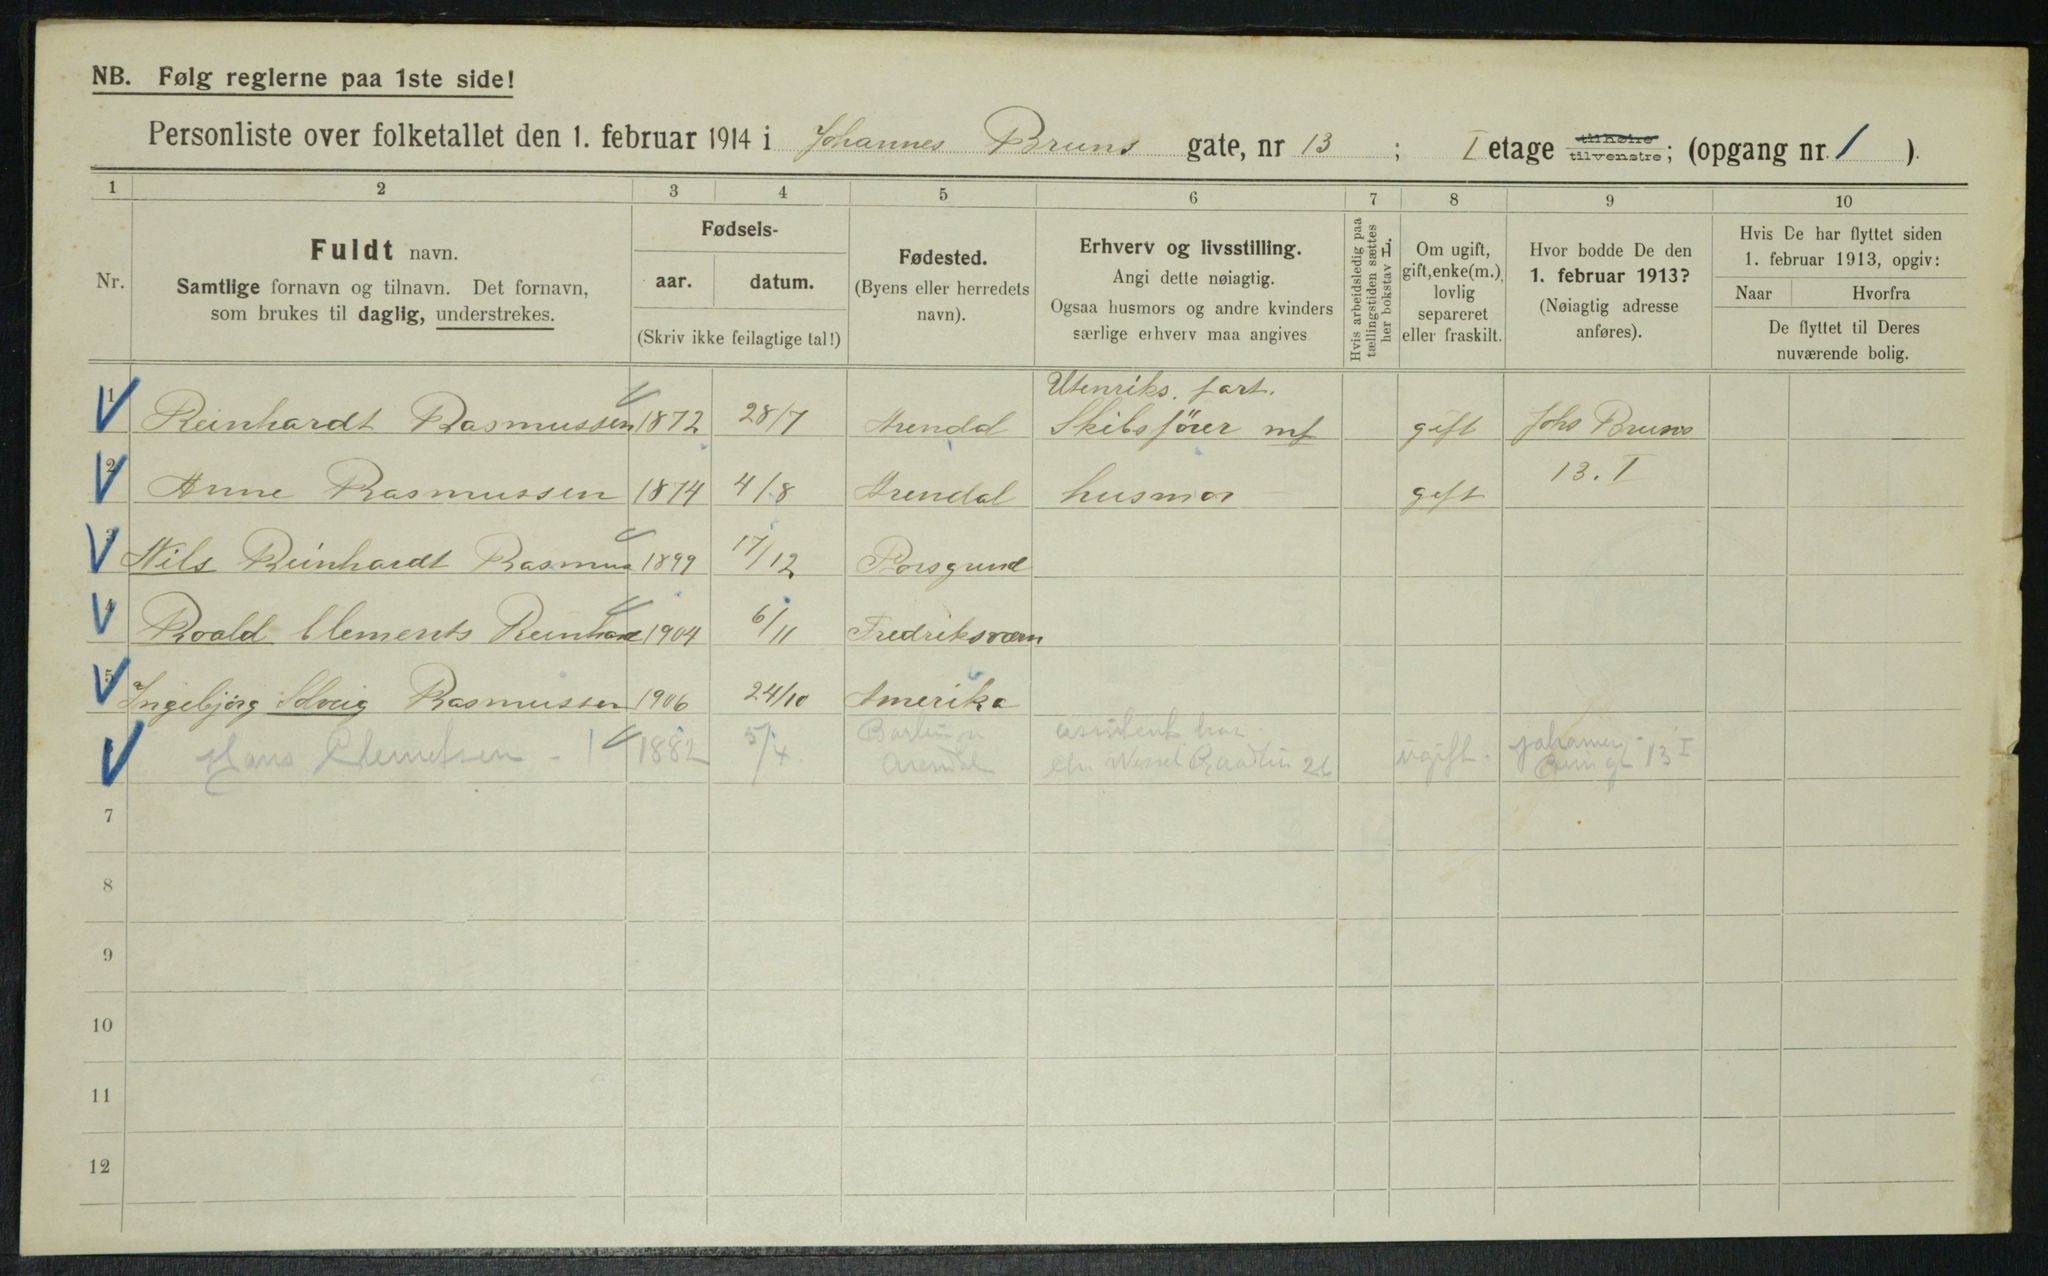 NB. Følg reglerne paa 1ste side!
Personliste over folketallet den 1. februar 1914 i Johannes Bruns gate, nr 13 ; I etage tilhøire tilvenstre; (opgang nr. 1 ).
1 2 3 4 5 6 7 8 9 10
Nr.
Fuldt navn.
Samtlige fornavn og tilnavn. Det fornavn,
som brukes til daglig, understrekes.
Fødsels-
aar. datum.
(Skriv ikke feilagtige tal!)
Fødested.
(Byens eller herredets
navn).
Erhverv og livsstilling.
Angi dette nøiagtig.
Ogsaa husmors og andre kvinders
særlige erhverv maa angives
Hvis arbeidsledig paa
tællingstiden sættes
her bokstav L.
Om ugift,
gift, enke(m.),
lovlig
separeret
eller fraskilt.
Hvor bodde De den
1. februar 1913?
(Nøiagtig adresse
anføres).
Hvis De har flyttet siden
1. februar 1913, opgiv:
Naar Hvorfra
De flyttet til Deres
nuværende bolig.
Utenriks. fart.
1 Reinhardt Rasmussen 1872 28/7 Arendal Skibsfører mf gift Johs Bruns
2 Anne Rasmussen 1874 4/8 Arendal husmor gift 13. I
3 Nils Reinhardt Rasmus 1899 17/12 Porsgrund
4 Roald Clements Reinhard 1904 6/11 Fredriksværn
5 Ingebjörg Solveig Rasmussen 1906 24/10 Amerika
Hans Clemetsen - 1 1882 5/4 Arendal assistent hos
Chr Wessel 26 ugift. Johannes
Bruns gt 13 I
7
8
9
10
11
12